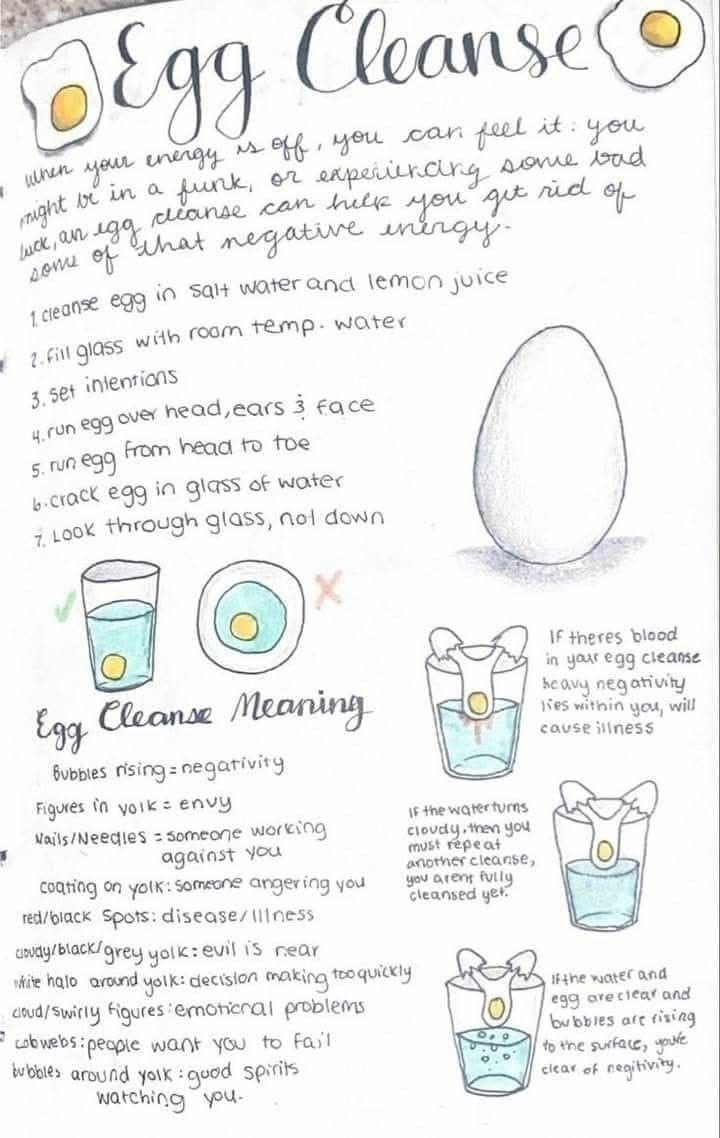 Egg Cleanse
when your energy is off, you can feel it: you
might be in a funk, or experiencing some bad
luck, an egg cleanse can help you get rid of
some of that negative energy.
1. cleanse egg in salt water and lemon juice
2. fill glass with room temp. water
3. set intentions
4. run egg over head, ears & face
5. run egg from head to toe
6. crack egg in glass of water
7. Look through glass, not down
Egg Cleanse Meaning
Bubbles rising = negativity
Figures in yolk = envy
Nails/Needles = someone working
against you
coating on yolk: someone angering you
red/black spots: disease/illness
cloudy/black/grey yolk: evil is near
white halo around yolk: decision making too quickly
cloud/swirly figures: emotional problems
cobwebs: people want you to fail
bubbles around yolk: good spirits
watching you.
If theres blood
in your egg cleanse
heavy negativity
lies within you, will
cause illness
If the water turns
cloudy, then you
must repeat
another cleanse,
you arent fully
cleansed yet.
If the water and
egg are clear and
bubbles are rising
to the surface, you're
clear of negitivity.